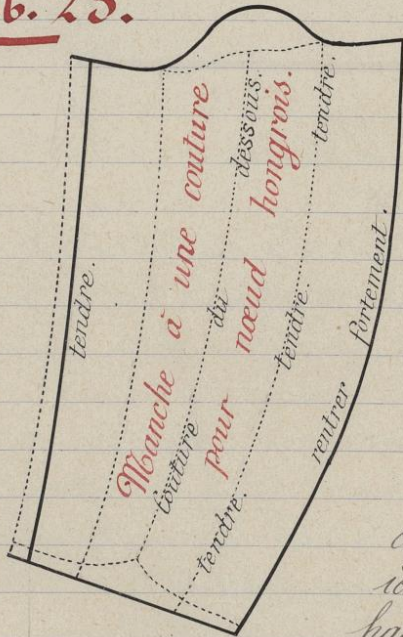 6. 25.
Manche à une couture
pour nœud hongrois.
tendre.
Couture du dessous.
tendre. tendre. tendre.
rentrer fortement.